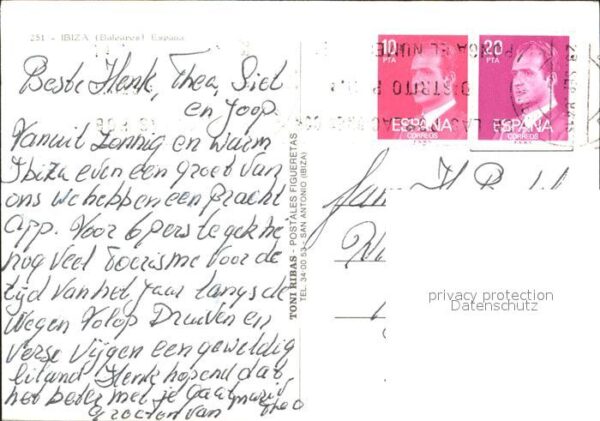 251 - IBIZA (Baleares) España
Beste Henk, Thea, Siet
en Joop.
Vanuit Zonnig en warm
Ibiza even een groet van
ons we hebben een pracht
app. Voor 6 pers te gek he
nog veel Toerisme voor de
tijd van het Jaar langs de
Wegen Volop Druiven en
Verse Vijgen een geweldig
Eiland Henk hopend dat
het beter met je gaat
Groeten van Theo
TONI RIBAS - POSTALES FIGUERETAS
TEL. 34 00 53 - SAN ANTONIO (IBIZA)
10
PTA
ESPAÑA
CORREOS
20
PTA
ESPAÑA
CORREOS
PONGA EL
DISTRITO
Fam
privacy protection
Datenschutz